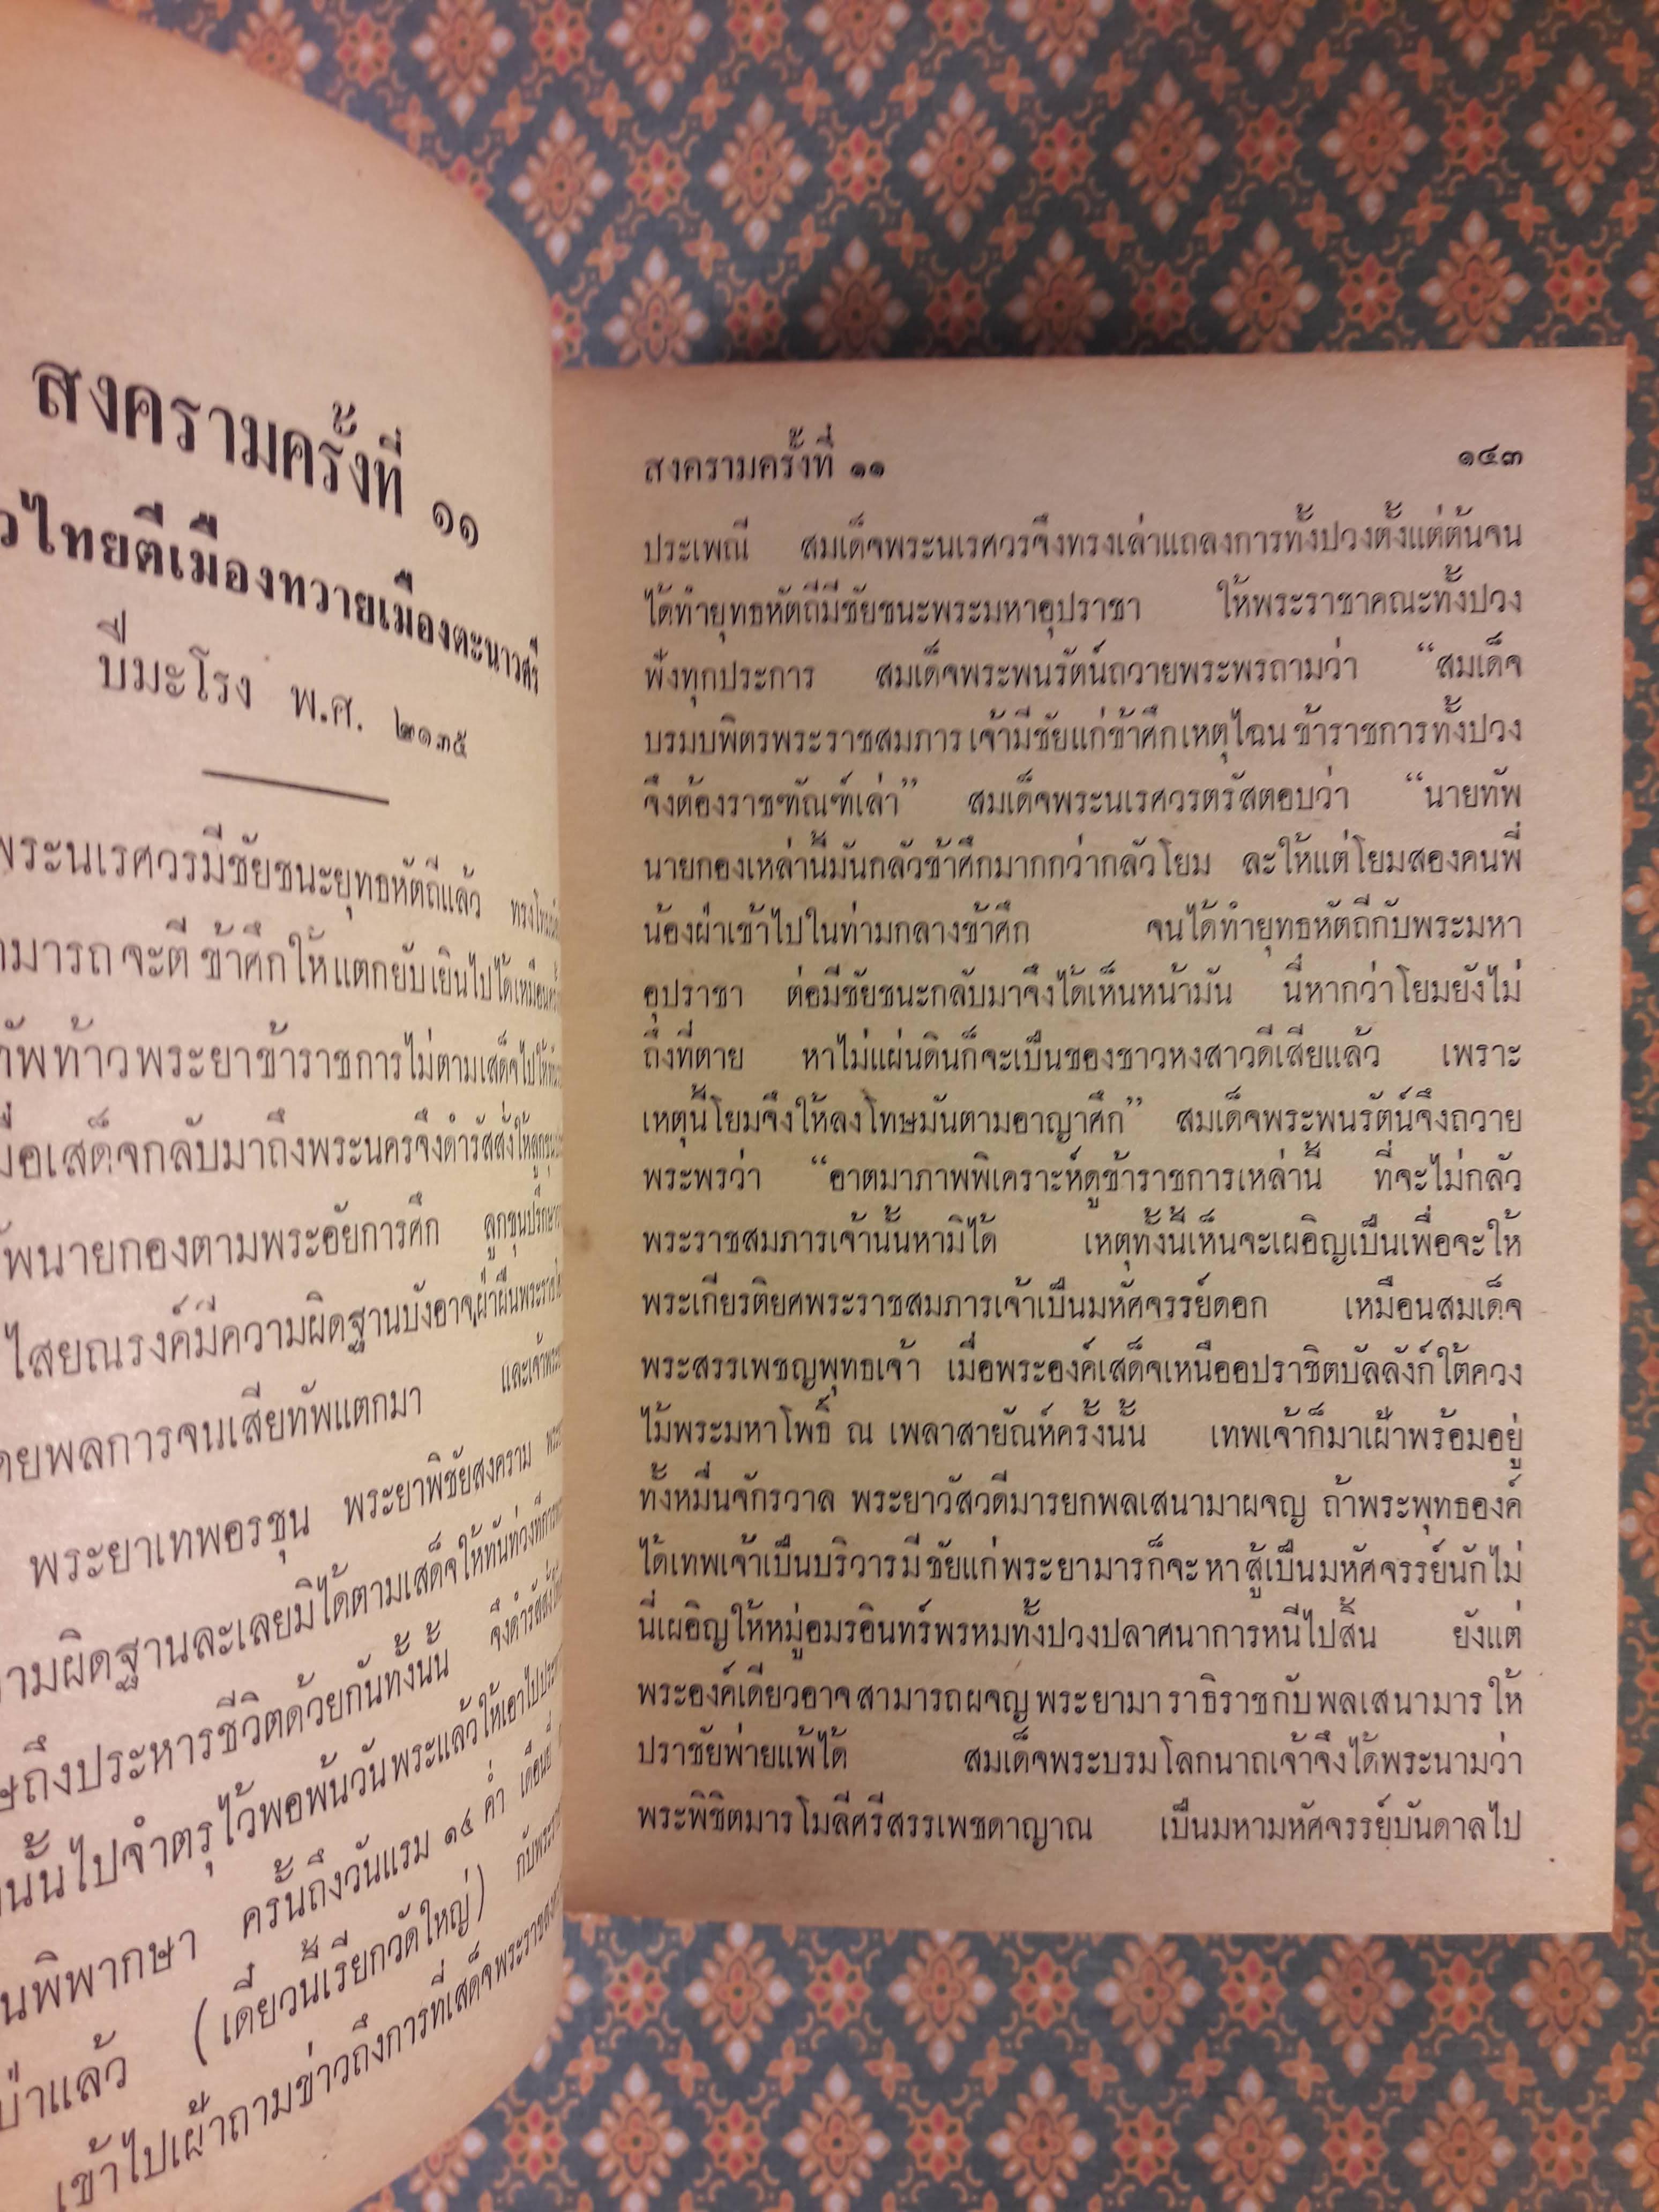 สงครามครั้งที่ ๑๑
ไทยตีเมืองทวายเมืองตะนาวศรี
ปีมะโรง พ.ศ. ๒๑๓๕
พระนเรศวรมีชัยชนะยุทธหัตถีแล้ว
จะตีข้าศึกให้แตกยับเยินไปได้เหมือน
ท้าวพระยาข้าราชการไม่ตามเสด็จไปให้
เสด็จกลับมาถึงพระนครจึงดำรัสสั่งให้
นายกองตามพระอัยการศึก ลูกขุนปรึกษา
ไสยณรงค์มีความผิดฐานบังอาจฝ่าฝืน
พลการจนเสียทัพแตกมา และเจ้าพระยา
พระยาเทพอรชุน พระยาพิชัยสงคราม
ผิดฐานละเลยมิได้ตามเสด็จให้ทันท่วงที
ถึงประหารชีวิตด้วยกันทั้งนั้น จึงดำรัสสั่ง
นั้นไปจำตรุไว้พอพ้นวันพระแล้วให้เอาไป
พิพากษา ครั้นถึงวันแรม ๑๔ ค่ำ เดือนยี่
ป่าแล้ว (เดี๋ยวนี้เรียกวัดใหญ่)
เข้าไปเฝ้าถามข่าวถึงการที่เสด็จพระราช
สงครามครั้งที่ ๑๑ ๑๔๓
ประเพณี สมเด็จพระนเรศวรจึงทรงเล่าแถลงการทั้งปวงตั้งแต่ต้นจน
ได้ทำยุทธหัตถีมีชัยชนะพระมหาอุปราชา ให้พระราชาคณะทั้งปวง
ฟังทุกประการ สมเด็จพระพนรัตน์ถวายพระพรถามว่า “สมเด็จ
บรมบพิตรพระราชสมภารเจ้ามีชัยแก่ข้าศึกเหตุไฉน ข้าราชการทั้งปวง
จึงต้องราชฑัณฑ์เล่า” สมเด็จพระนเรศวรตรัสตอบว่า “นายทัพ
นายกองเหล่านี้มันกลัวข้าศึกมากกว่ากลัวโยม ละให้แต่โยมสองคนพี่
น้องฝ่าเข้าไปในท่ามกลางข้าศึก จนได้ทำยุทธหัตถีกับพระมหา
อุปราชา ต่อมีชัยชนะกลับมาจึงได้เห็นหน้ามัน นี่หากว่าโยมยังไม่
ถึงที่ตาย หาไม่แผ่นดินก็จะเป็นของชาวหงสาวดีเสียแล้ว เพราะ
เหตุนี้โยมจึงให้ลงโทษมันตามอาญาศึก” สมเด็จพระพนรัตน์จึงถวาย
พระพรว่า “อาตมาภาพพิเคราะห์ดูข้าราชการเหล่านี้ ที่จะไม่กลัว
พระราชสมภารเจ้านั้นหามิได้ เหตุทั้งนี้เห็นจะเผอิญเป็นเพื่อจะให้
พระเกียรติยศพระราชสมภารเจ้าเป็นมหัศจรรย์ดอก เหมือนสมเด็จ
พระสรรเพชญพุทธเจ้า เมื่อพระองค์เสด็จเหนืออปราชิตบัลลังก์ใต้ควง
ไม้พระมหาโพธิ์ ณ เพลาสายัณห์ครั้งนั้น เทพเจ้าก็มาเฝ้าพร้อมอยู่
ทั้งหมื่นจักรวาล พระยาวัสวดีมารยกพลเสนามาผจญ ถ้าพระพุทธองค์
ได้เทพเจ้าเป็นบริวารมีชัยแก่พระยามารก็จะหาสู้เป็นมหัศจรรย์นักไม่
นี่เผอิญให้หมู่อมรอินทร์พรหมทั้งปวงปลาศนาการหนีไปสิ้น ยังแต่
พระองค์เดียวอาจสามารถผจญพระยามาราธิราชกับพลเสนามารให้
ปราชัยพ่ายแพ้ได้ สมเด็จพระบรมโลกนาถเจ้าจึงได้พระนามว่า
พระพิชิตมารโมลีศรีสรรเพชดาญาณ เป็นมหามหัศจรรย์บันดาลไป